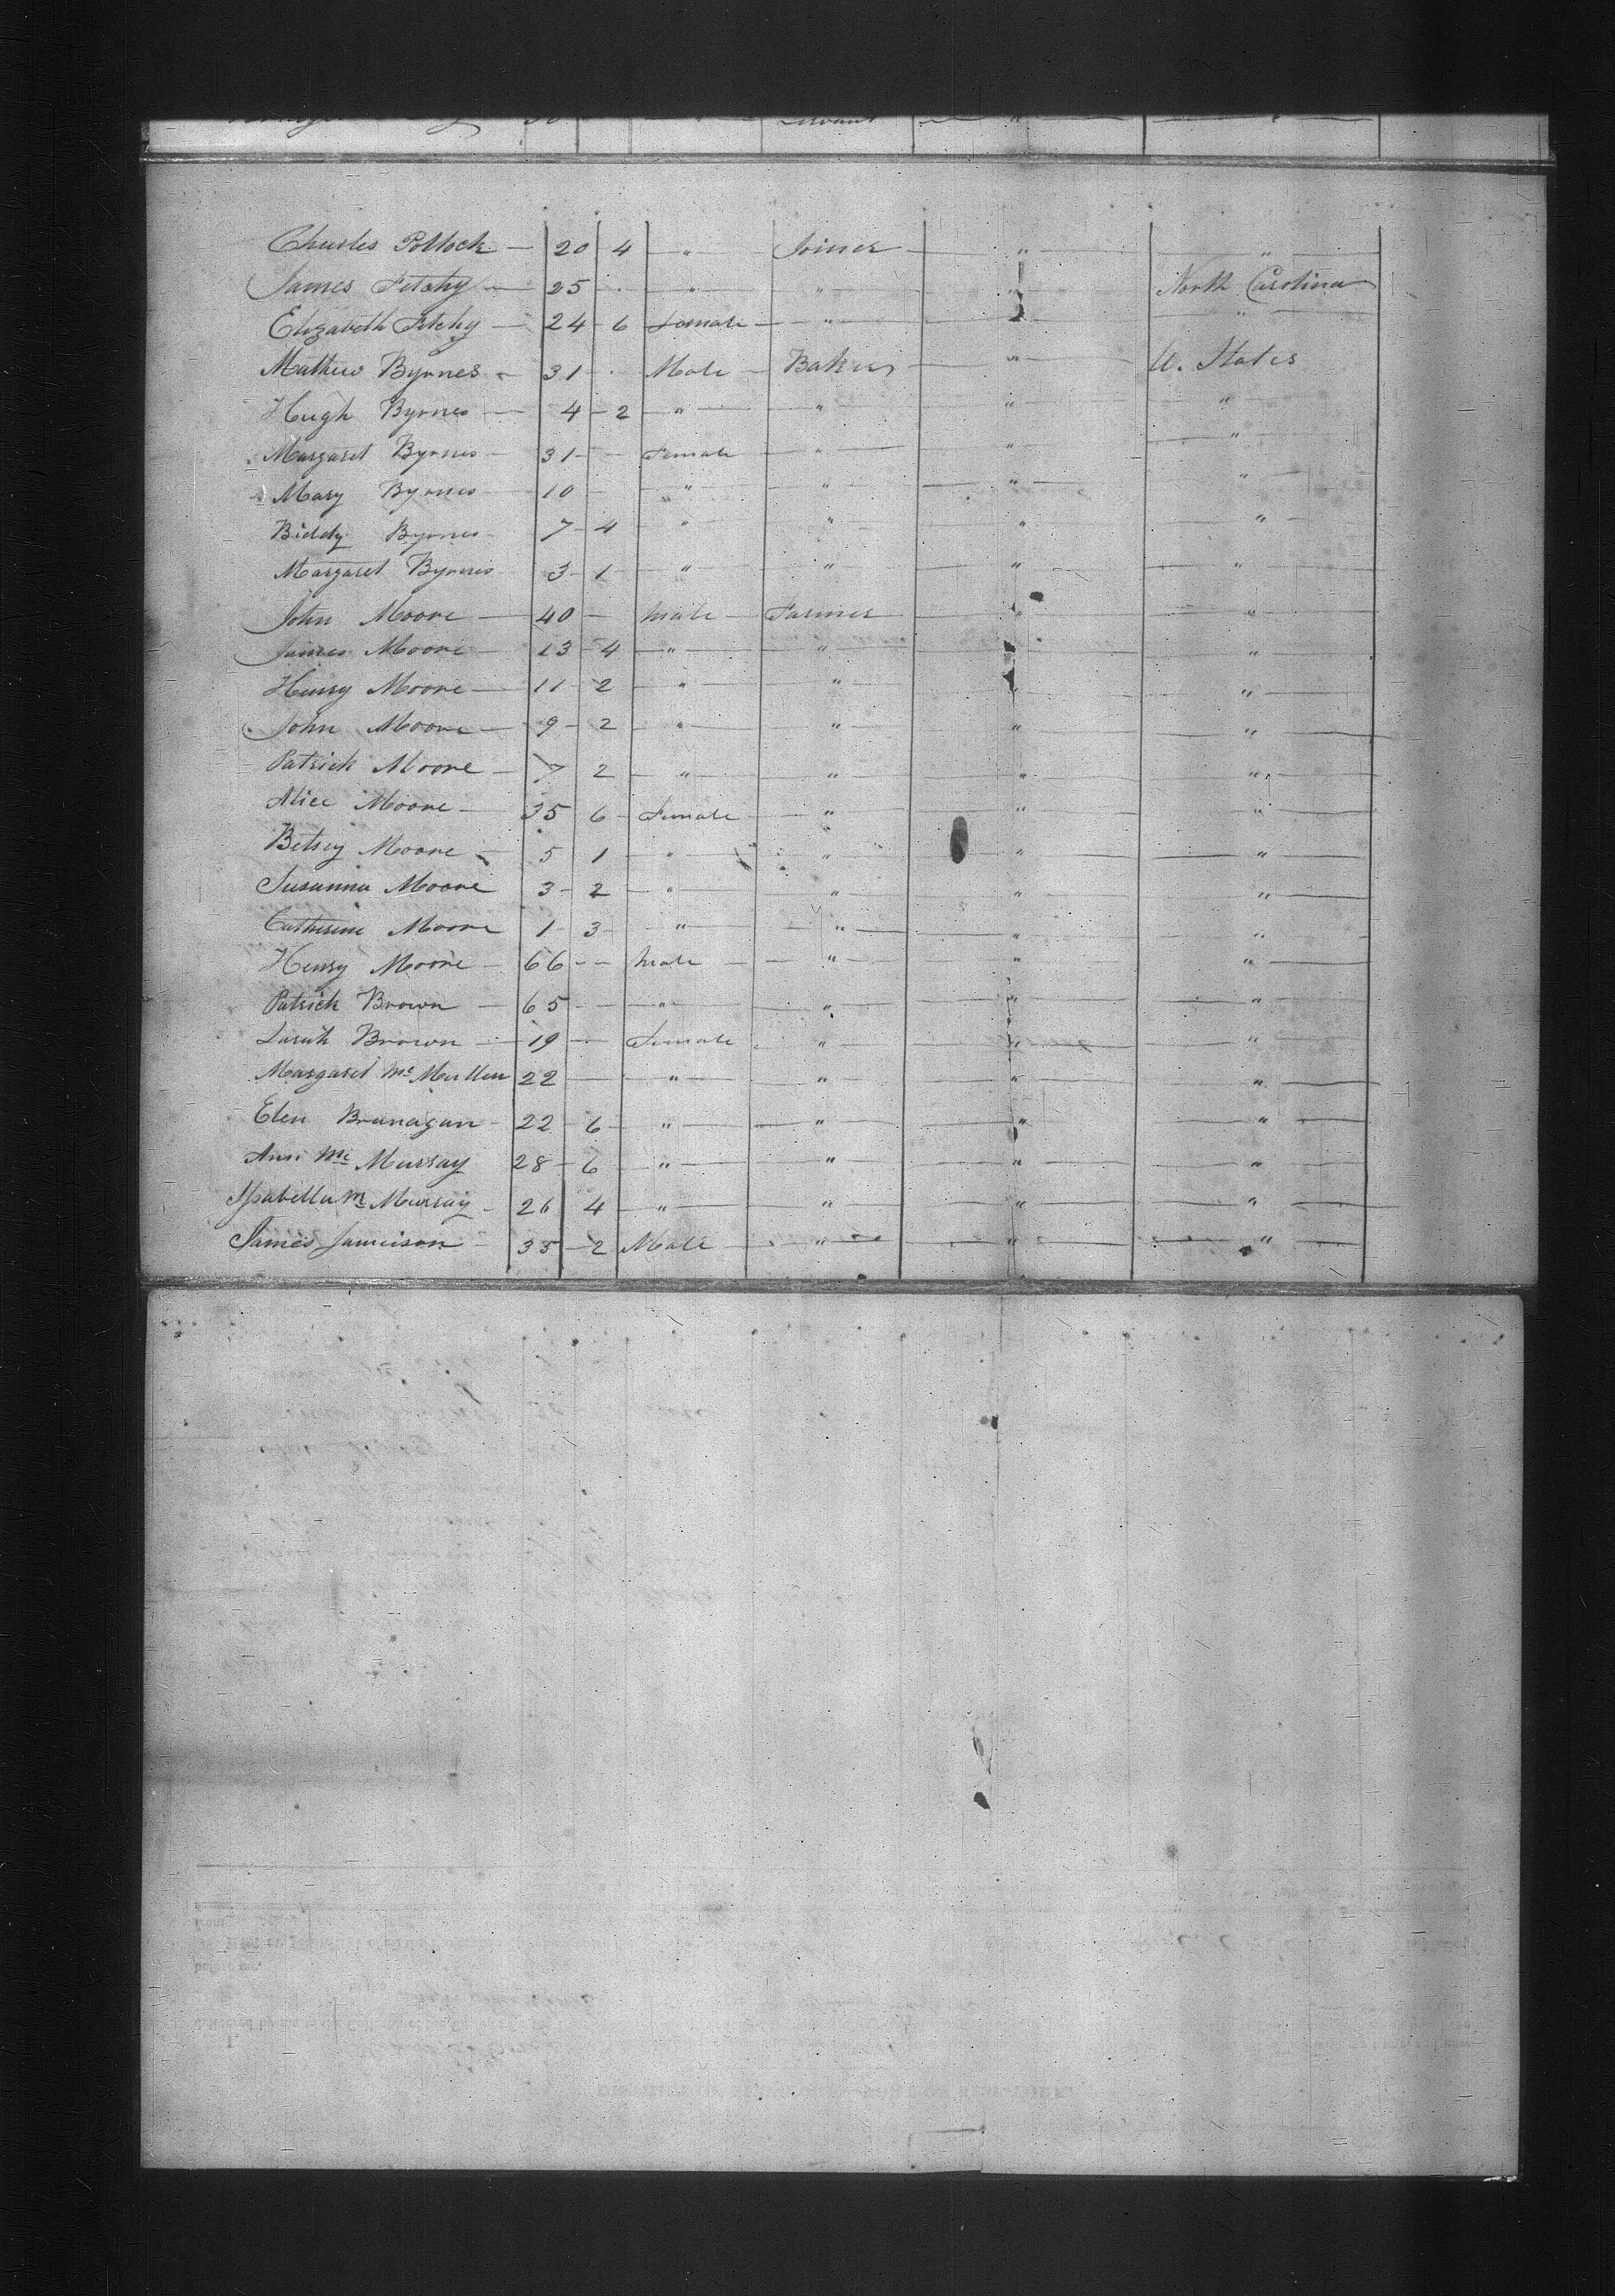 Servant " "
Charles Pollock — 20 4 " Joiner " "
James Fetchy — 25 " " " North Carolina
Elizabeth Fetchy — 24 - 6 Female — " " "
Mathew Byrnes - 31 - Male — Baker " U. States
Hugh Byrnes — 4 - 2 " " " "
Margaret Byrnes — 31 - Female " " "
Mary Byrnes — 10 " " " "
Biddy Byrnes - 7 - 4 " " " "
Margaret Byrnes - 3 - 1 " " " "
John Moore — 40 — Male — Farmer " "
James Moore — 13 - 4 " " " "
Henry Moore — 11 - 2 " " " "
John Moore — 9 - 2 " " " "
Patrick Moore — 7 2 " " " "
Alice Moore — 35 6 - Female " " "
Betsey Moore - 5 1 " " " "
Susanna Moore 3 - 2 " " " "
Catherine Moore 1 - 3 " " " "
Henry Moore — 66 - - Male — " " "
Patrick Brown — 65 - - " " " "
Sarah Brown — 19 — Female " " "
Margaret Mc Mullen 22 — " " " "
Elen Branagan - 22 - 6 " " " "
Ann Mc Murray 28 - 6 " " " "
Isabella Mc Murray - 26 4 " " " "
James Jamieson - 35 - 2 Male " " "